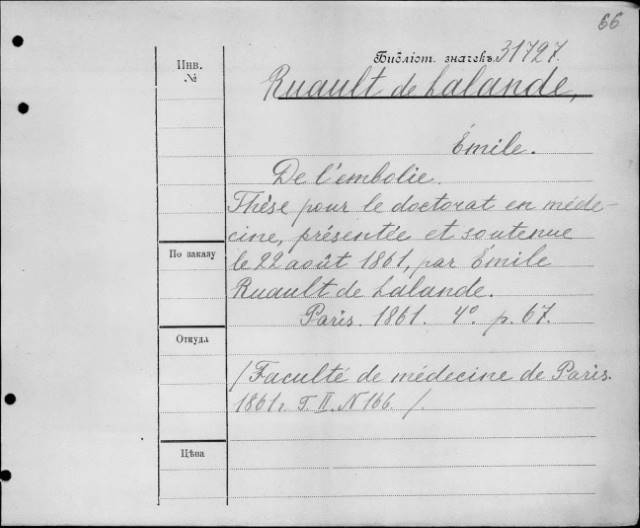 66
Библіот. значекъ 31727.
Инв.
№
Ruault de Lalande,
Émile.
De l'embolie.
Thèse pour le doctorat en méde-
cine, présentée et soutenue
По заказу
le 22 août 1861, par Émile
Ruault de Lalande.
Paris. 1861. 4º. p. 67.
Откуда
/ Faculté de médecine de Paris.
1861. T. II. N 166. /.
Цѣна